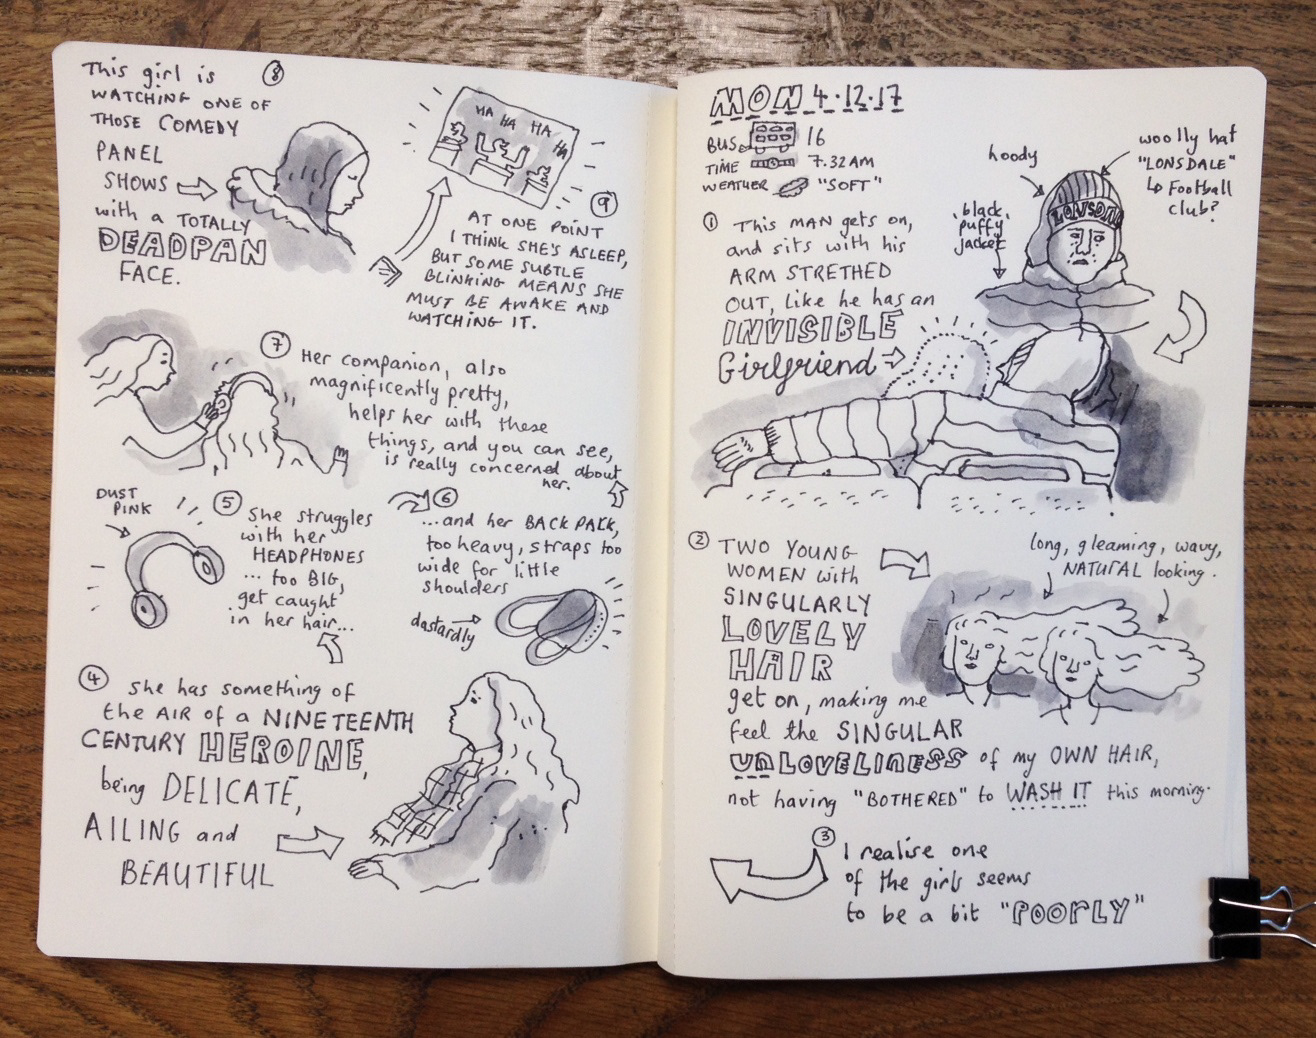 MON 4.12.17
BUS 16
TIME 7.32AM
WEATHER "SOFT"
hoody
woolly hat
"LONSDALE"
↳ Football
club?
black,
puffy
jacket
LONSDAL
① This MAN gets on,
and sits with his
ARM STRETHED
OUT, like he has an
INVISIBLE
Girlfriend
② TWO YOUNG
WOMEN with
SINGULARLY
LOVELY
HAIR
get on, making me
feel the SINGULAR
UNLOVELINESS of my OWN HAIR,
not having "BOTHERED" to WASH IT this morning.
long, gleaming, wavy,
NATURAL looking.
③ I realise one
of the girls seems
to be a bit "POORLY"
④ She has something of
the AIR of a NINETEENTH
CENTURY HEROINE,
being DELICATE,
AILING and
BEAUTIFUL
DUST
PINK
⑤ She struggles
with her
HEADPHONES
... too BIG,
get caught
in her hair...
⑥ ...and her BACK PACK,
too heavy, straps too
wide for little
shoulders
dastardly
⑦ Her companion, also
magnificently pretty,
helps her with these
things, and you can see,
is really concerned about
her.
⑧ This girl is
WATCHING ONE OF
THOSE COMEDY
PANEL
SHOWS
with a TOTALLY
DEADPAN
FACE.
HA HA HA HA
⑨ AT ONE POINT
I THINK SHE'S ASLEEP,
BUT SOME SUBTLE
BLINKING MEANS SHE
MUST BE AWAKE AND
WATCHING IT.